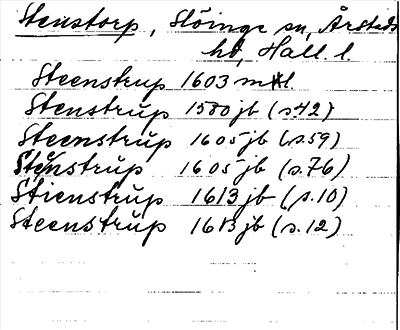 Stenstorp, Slöinge sn, Årstads
hd, Hall. l.
Steenstrup 1603 mtl.
Stenstrup 1580 jb (s 42)
Steenstrup 1605 jb (s. 59)
Stenstrup 1605 jb (s. 76)
Stienstrup 1613 jb (s. 10)
Steenstrup 1613 jb (s. 12)